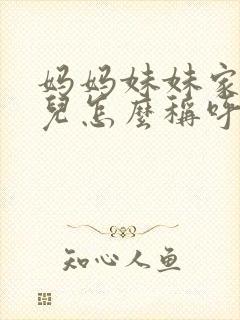 妈妈妹妹家
兒怎麽稱呼
知心人鱼